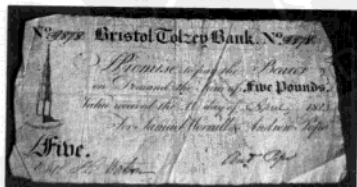 No. 4878 Bristol Tolzey Bank. No. 4878
I Promise to pay the Bearer
on Demand the Sum of Five Pounds.
Value received the 10 day of
For Samuel Worrall & Andrew Pope
Five.
And. Pope